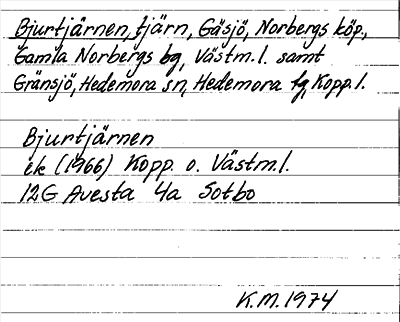 Bjurtjärnen, tjärn, Gäsjö, Norbergs köp.,
Gamla Norbergs bg, Västm.l. samt
Gränsjö, Hedemora sn, Hedemora tg, Kopp.l.
Bjurtjärnen
ek (1966) Kopp. o. Västm.l.
12G Avesta 4a Sotbo
K.M. 1974